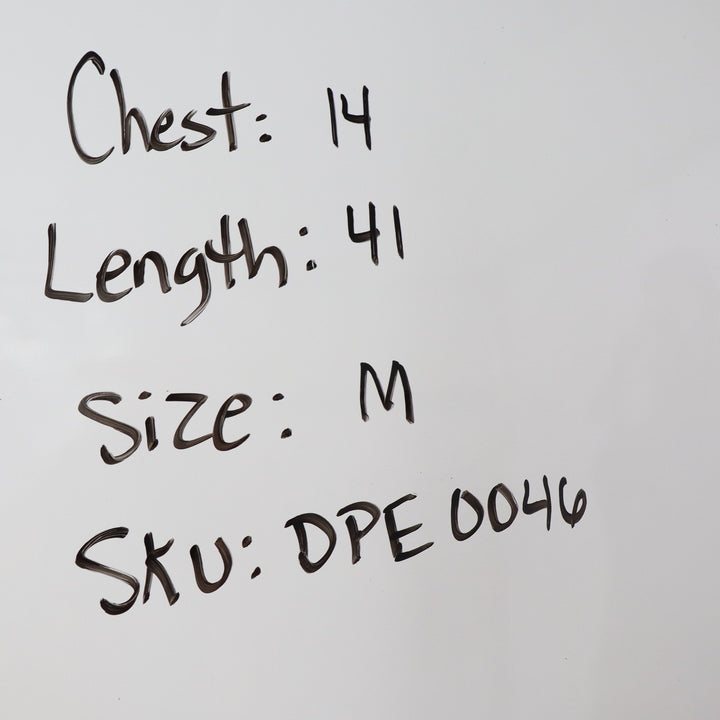 Chest: 14
Length: 41
Size: M
SKU: DPE 0046